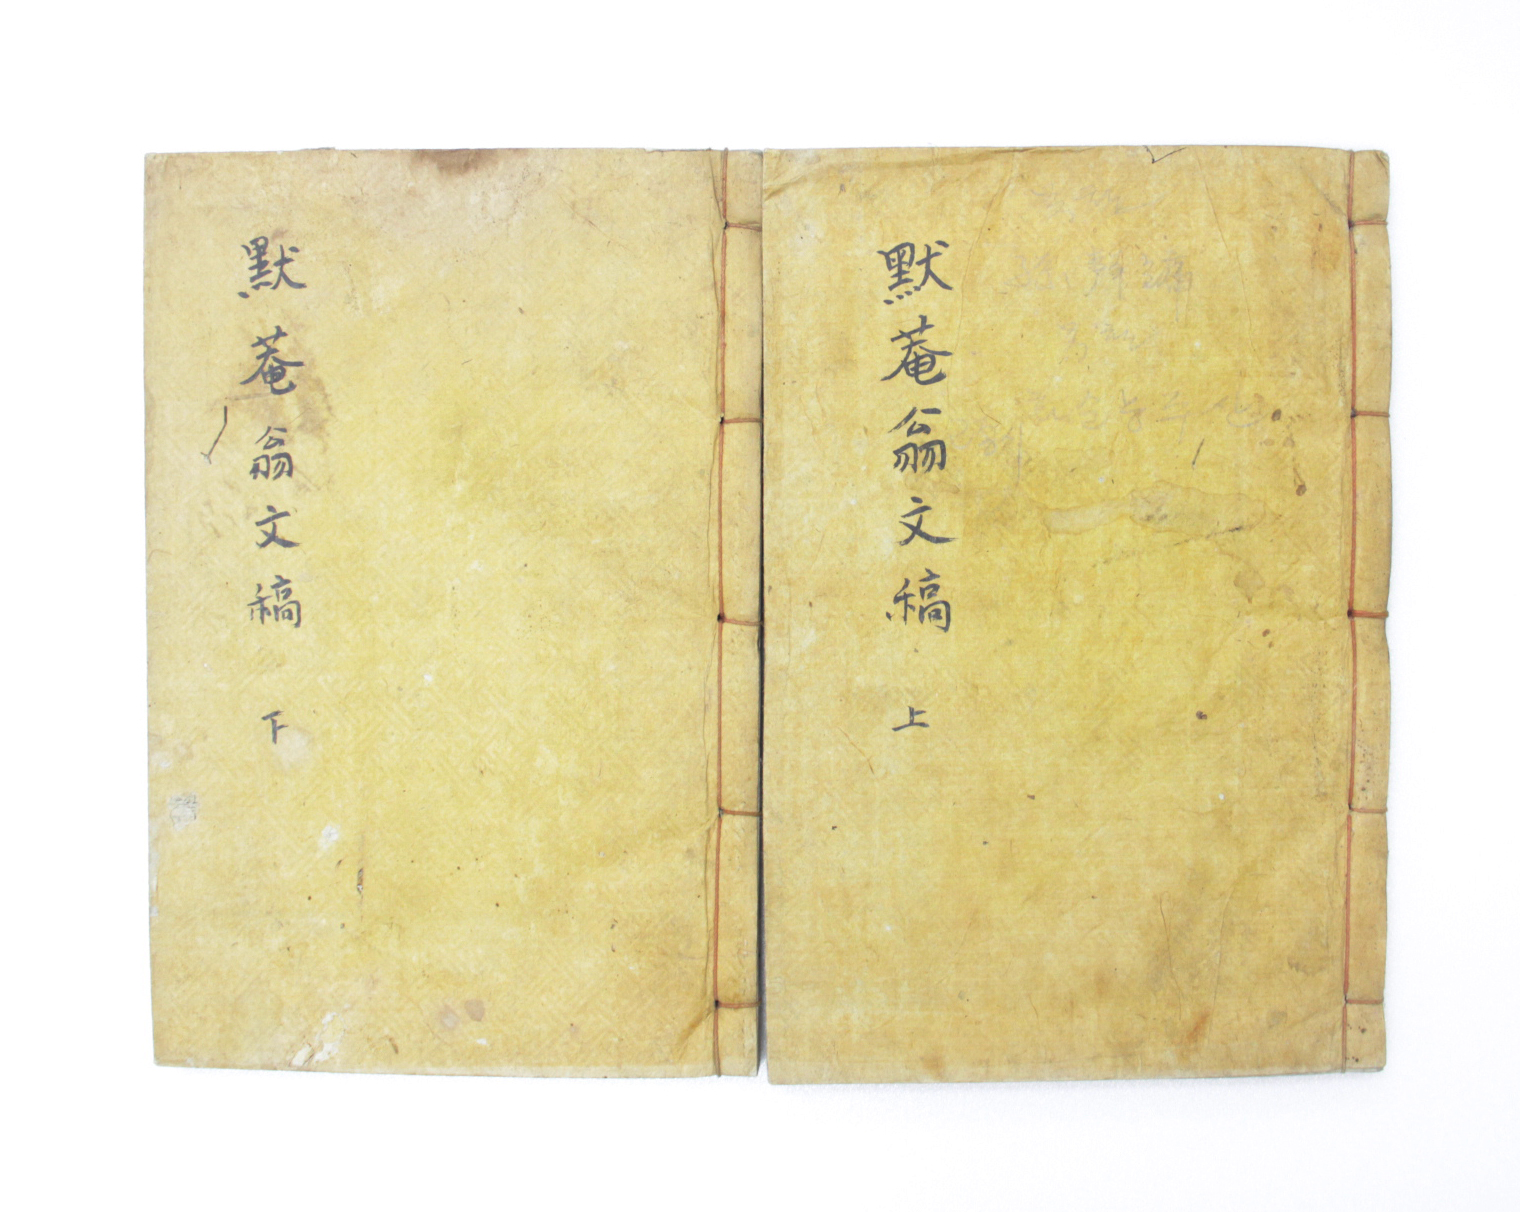 默菴翁文稿 上
默菴翁文稿 下